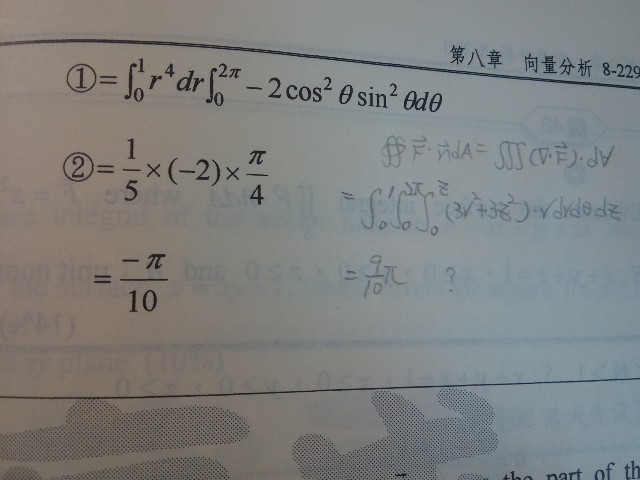 第八章 向量分析 8-229
①=∫₀¹ r⁴ dr ∫₀^{2π} −2cos²θ sin²θdθ
②= 1/5 ×(−2)× π/4
= −π/10
∯ F⃗·n⃗dA = ∭ (∇·F⃗)·dV
= ∫₀¹∫₀^{2π}∫₀^{z} (3r²+3z²)·rdrdθdz
= 9/10 π ?
the part of th